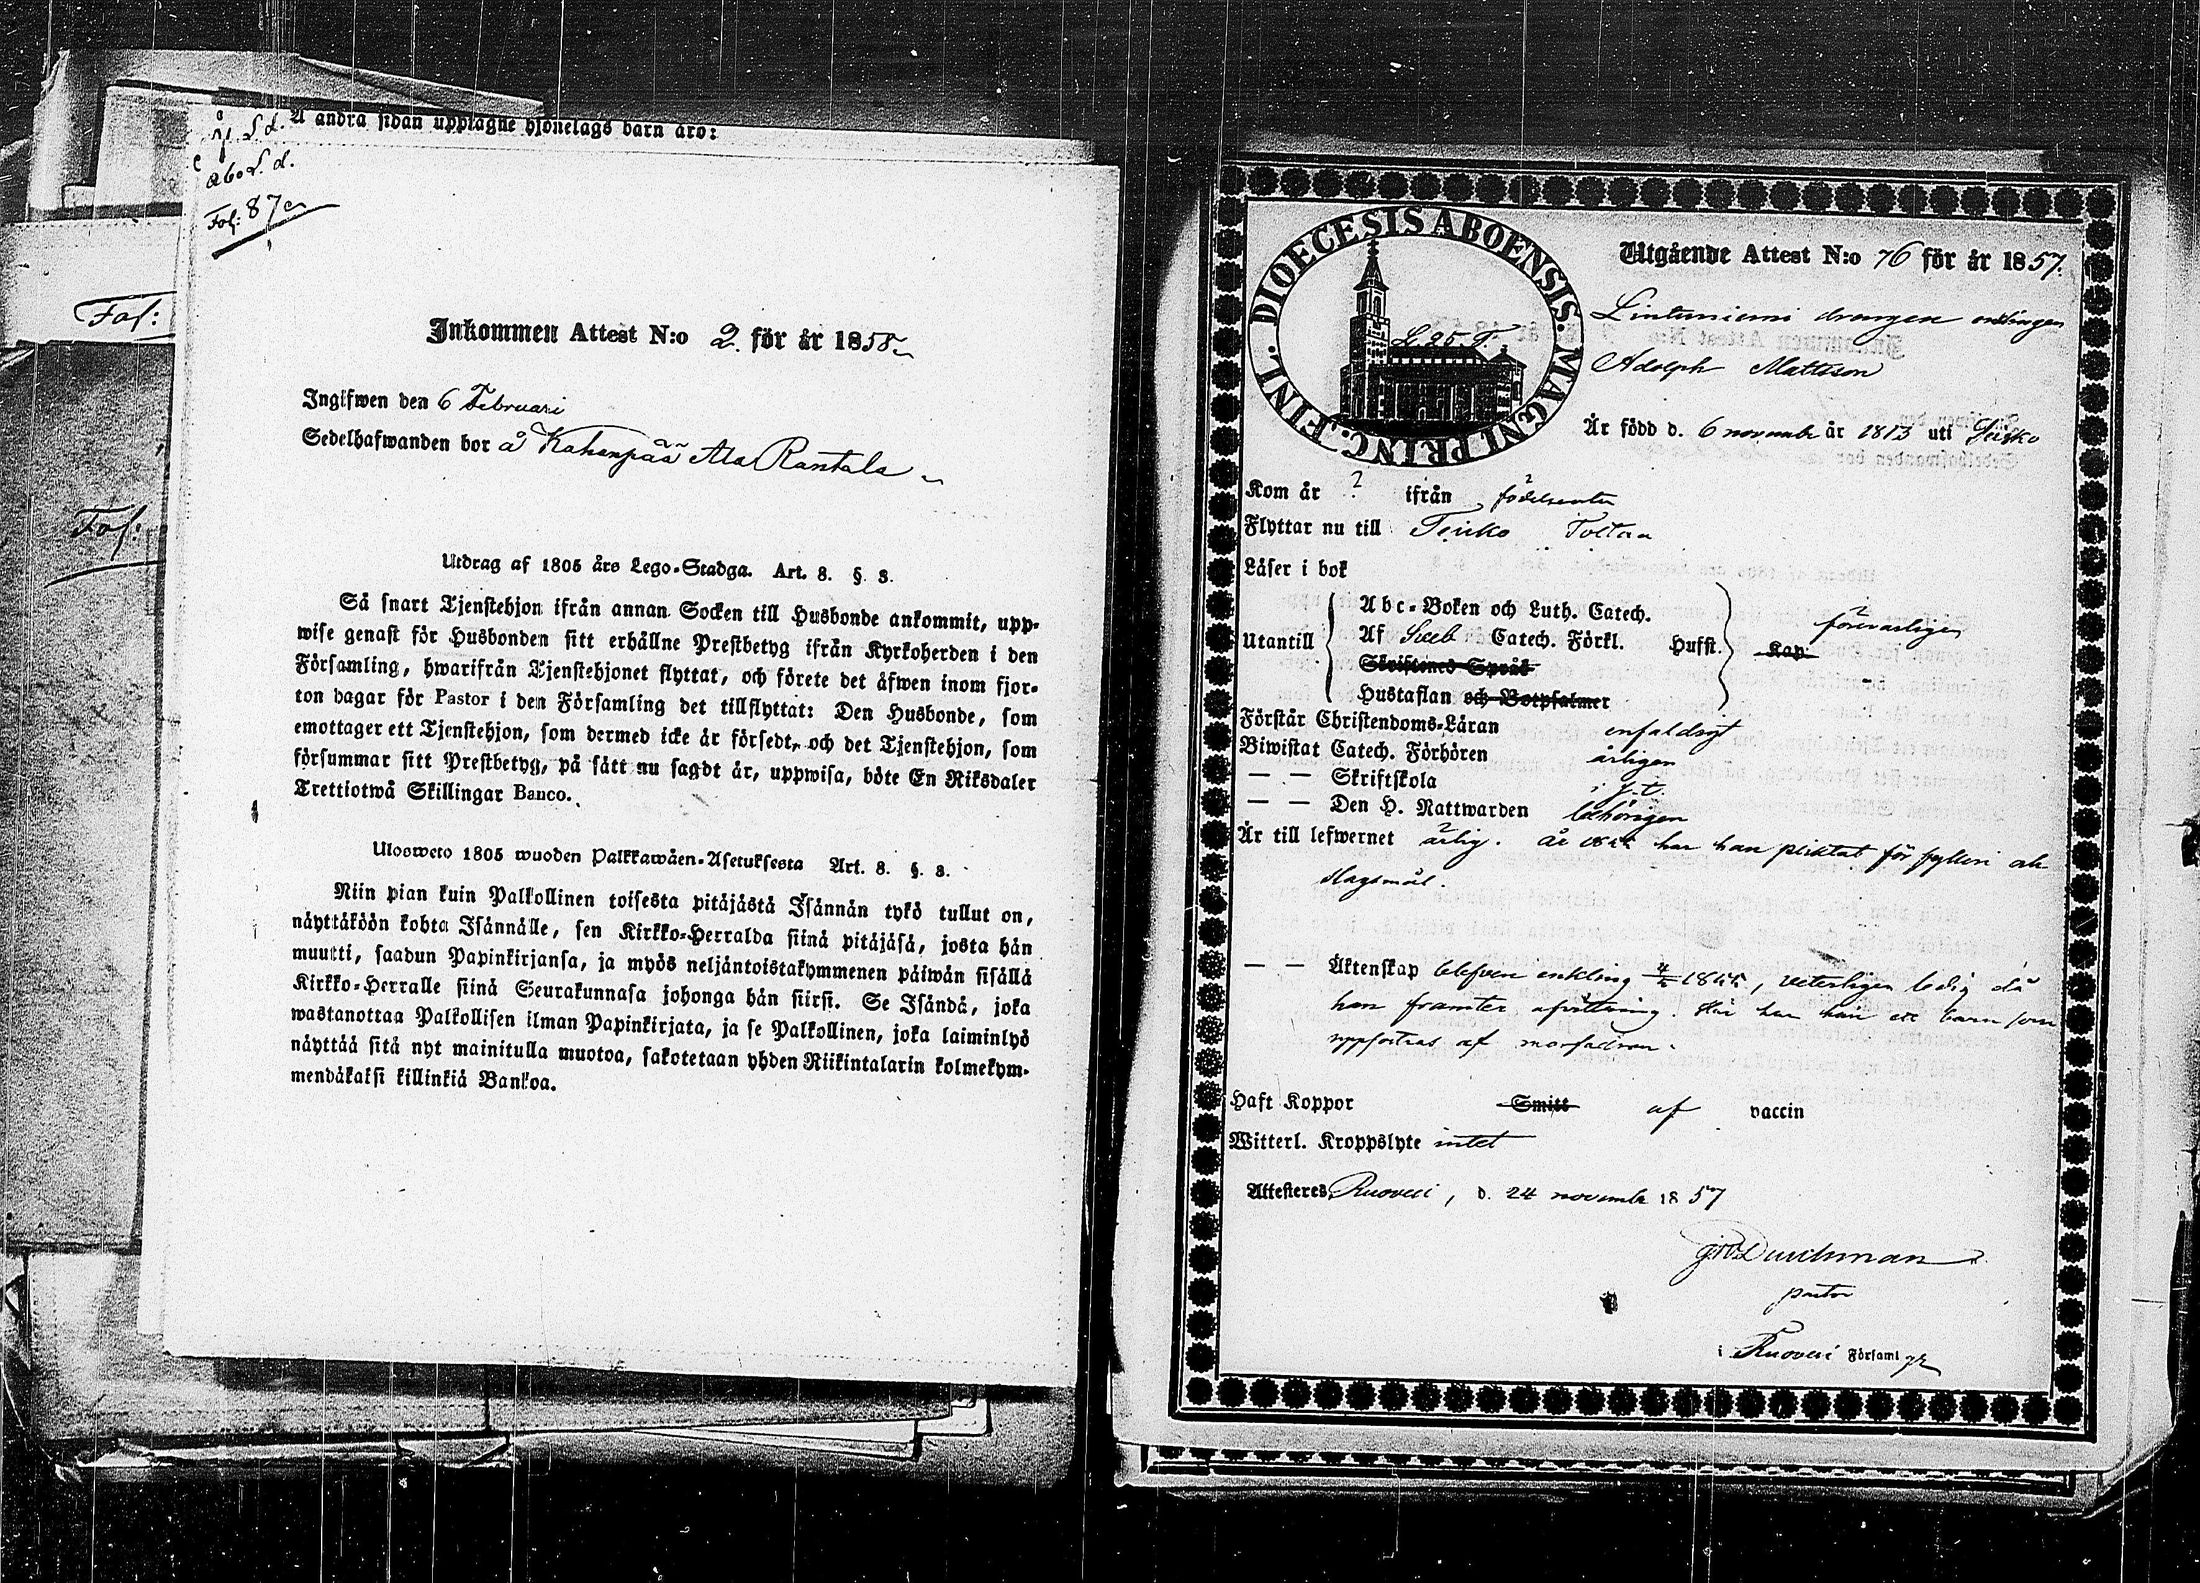 Å andra sidan upptagne hjonelags barn äro:
abo S. d.
Fol: 87
Fol:
Fol:
Inkommen Attest N:o 2 för år 1858
Ingifwen den 6 Februari
Sedelhafwanden bor å Kahenpää Ala Rantala
Utdrag af 1805 års Lego-Stadga. Art. 8. §. 3.
Så snart Tjenstehjon ifrån annan Socken till Husbonde ankommit, upp-
wise genast för Husbonden sitt erhållne Prestbetyg ifrån Kyrkoherden i den
Församling, hwarifrån Tjenstehjonet flyttat, och förete det äfwen inom fjor-
ton dagar för Pastor i den Församling det tillflyttat: Den Husbonde, som
emottager ett Tjenstehjon, som dermed icke är försedt, och det Tjenstehjon, som
försummar sitt Prestbetyg, på sätt nu sagdt är, uppwisa, böte En Riksdaler
Trettiotwå Skillingar Banco.
Ulosweto 1805 wuoden Palkkawäen-Asetuksesta Art. 8. §. 3.
Niin pian kuin Palkollinen toisesta pitäjästä Isännän tykö tullut on,
näyttäköön kohta Isännälle, sen Kirkko-Herralda siinä pitäjäsä, josta hän
muutti, saadun Papinkirjansa, ja myös neljäntoistakymmenen päiwän sisällä
Kirkko-Herralle siinä Seurakunnasa johonga hän siirsi. Se Isändä, joka
wastanottaa Palkollisen ilman Papinkirjata, ja se Palkollinen, joka laiminlyö
näyttää sitä nyt mainitulla muotoa, sakotetaan yhden Riikintalarin kolmekym-
mendäkaksi killinkiä Bankoa.
DIOECESIS ABOENSIS. MAGNI PRINC. FINL.
L. 25. F.
Utgående Attest N:o 76 för år 1857.
Lintuniemi drängen enklingen
Adolph Mattsson
Är född d. 6 november år 1813 uti
Kom år ? ifrån födelseorten
Flyttar nu till Teisko
Läser i bok
Utantill
Abc-Boken och Luth. Catech.
Af Sveb Catech. Förkl. Husst. Kap.
Skriftenes Språk
Hustaflan och Botpsalmer
försvarligen
Förstår Christendoms-Läran enfaldigt
Biwistat Catech. Förhören årligen
— — Skriftskola i J. t.
— — Den H. Nattwarden behörigen
Är till lefwernet ärlig. År har han pliktat för fylleri och
slagsmål.
— — Äktenskap blefven enkling, veterligen ledig då
han framter afvittring. Här har han ett barn som
uppfostras af morfadren.
Haft Koppor Smitt af vaccin
Witterl. Kroppslyte intet
Attesteras Ruovesi, d. 24 november 1857
Durchman
pastor
i Ruovesi Församl